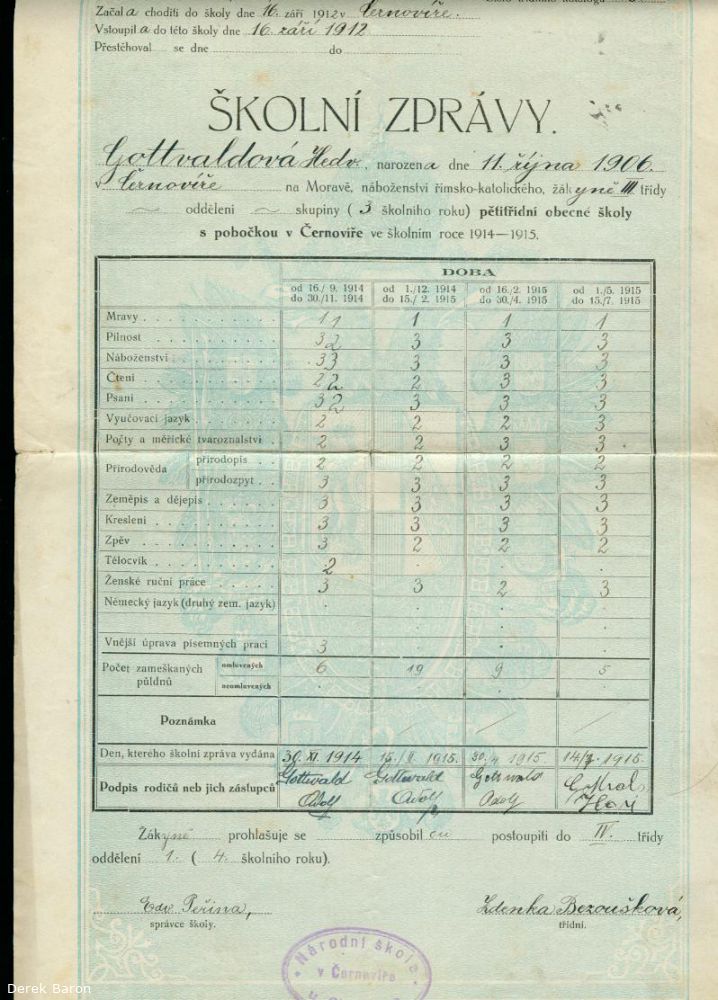 Začala choditi do školy dne 16. září 1912 v Černovíře.
Vstoupila do této školy dne 16. září 1912
Přestěhoval se dne do
ŠKOLNÍ ZPRÁVY.
Gottvaldová Hedv., narozena dne 11. října 1906.
v Černovíře na Moravě, náboženství římsko-katolického, žákyně III třídy
oddělení skupiny (3 školního roku) pětitřídní obecné školy
s pobočkou v Černovíře ve školním roce 1914—1915.
DOBA
od 16./ 9. 1914 do 30./11. 1914 od 1./12. 1914 do 15./ 2. 1915 od 16./2. 1915 do 30./4. 1915 od 1./5. 1915 do 15./7. 1915
Mravy 1 1 1 1 1
Pilnost 3 2 3 3 3
Náboženství 3 3 3 3 3
Čtení 2 2 2 3 3
Psaní 3 2 3 3 3
Vyučovací jazyk 2 2 2 3
Počty a měřické tvaroznalství 2 2 3 3
Přírodověda přírodopis 2 2 2 2
přírodozpyt 3 3 3 3
Zeměpis a dějepis 3 3 3 3
Kreslení 3 3 3 3
Zpěv 3 2 2 2
Tělocvik 2
Ženské ruční práce 3 3 2 3
Německý jazyk (druhý zem. jazyk)
Vnější úprava písemných prací 3
Počet zameškaných půldnů omluvených 6 19 9 5
neomluvených
Poznámka
Den, kterého školní zpráva vydána 30. XI. 1914 15./II. 1915. 30./4 1915 14/7. 1915.
Podpis rodičů neb jich zástupců Gottwald Adolf Gottwald Adolf Gottwald Adolf
Žákyně prohlašuje se způsobilou postoupiti do IV. třídy
oddělení 1. (4. školního roku).
Edv. Peřina, Zdenka Bezoušková,
správce školy. třídní.
Národní škola
v Černovíře
Derek Baron